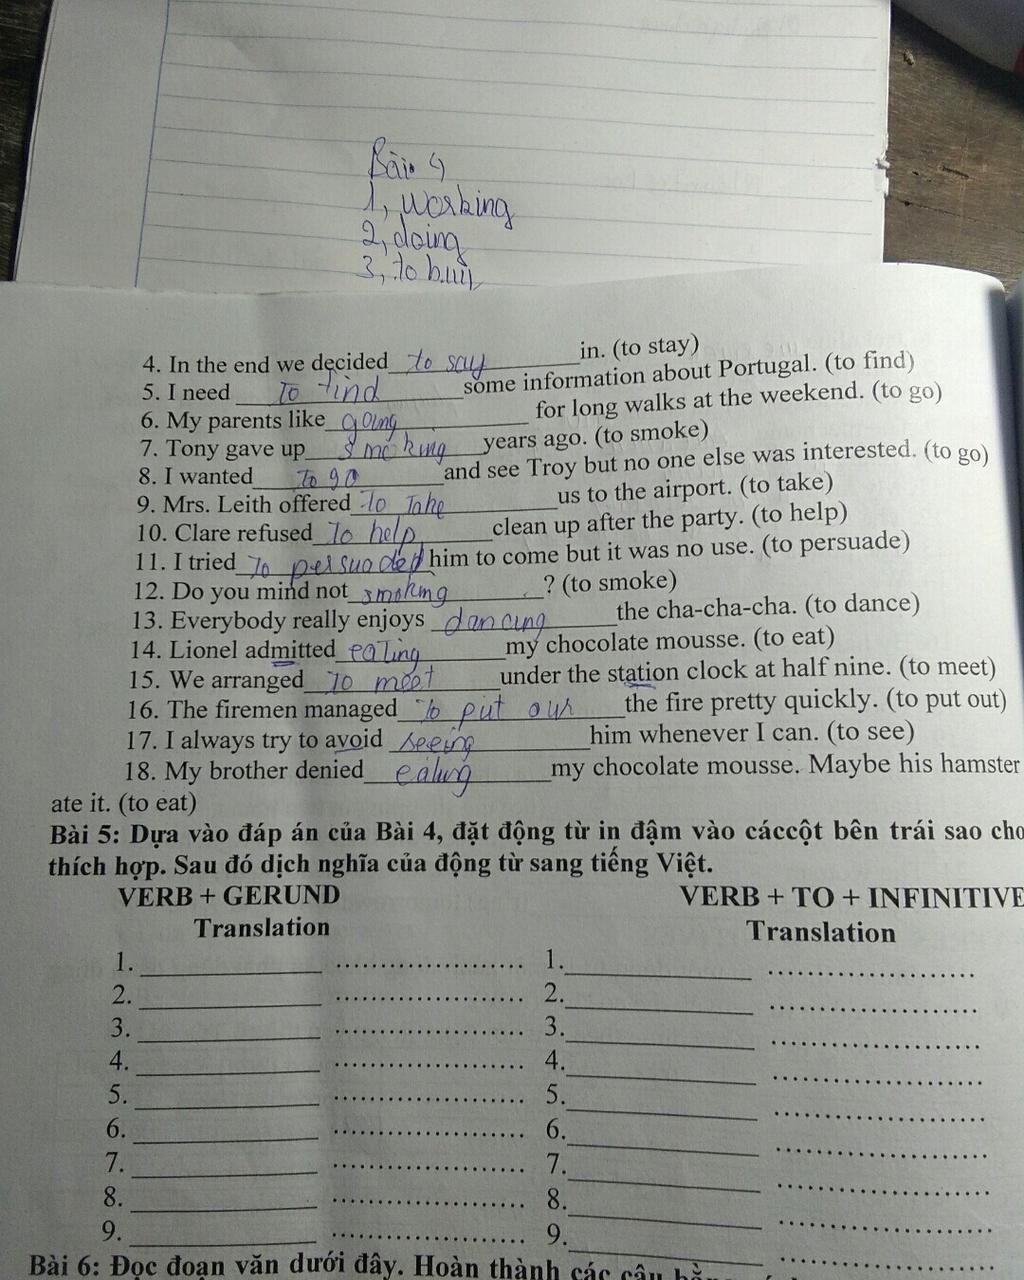 Bài 4
1, working
2, doing
3, to buy
4. In the end we decided to say in. (to stay)
5. I need to find some information about Portugal. (to find)
6. My parents like going for long walks at the weekend. (to go)
7. Tony gave up smoking years ago. (to smoke)
8. I wanted to go and see Troy but no one else was interested. (to go)
9. Mrs. Leith offered to take us to the airport. (to take)
10. Clare refused to help clean up after the party. (to help)
11. I tried to persuaded him to come but it was no use. (to persuade)
12. Do you mind not smoking ? (to smoke)
13. Everybody really enjoys dancing the cha-cha-cha. (to dance)
14. Lionel admitted eating my chocolate mousse. (to eat)
15. We arranged to meet under the station clock at half nine. (to meet)
16. The firemen managed to put out the fire pretty quickly. (to put out)
17. I always try to avoid seeing him whenever I can. (to see)
18. My brother denied eating my chocolate mousse. Maybe his hamster
ate it. (to eat)
Bài 5: Dựa vào đáp án của Bài 4, đặt động từ in đậm vào cáccột bên trái sao cho
thích hợp. Sau đó dịch nghĩa của động từ sang tiếng Việt.
VERB + GERUND VERB + TO + INFINITIVE
Translation Translation
1. 1.
2. 2.
3. 3.
4. 4.
5. 5.
6. 6.
7. 7.
8. 8.
9. 9.
Bài 6: Đọc đoạn văn dưới đây. Hoàn thành các câu